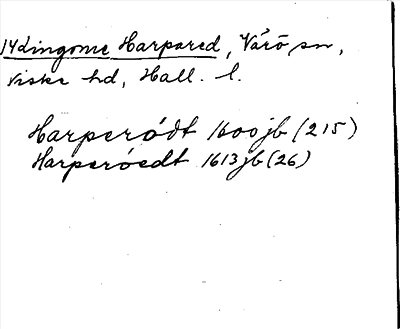 Harpared, Värö sn,
Viske hd, Hall. l.
Harperódt 1600 jb (215)
Harperóedt 1613 jb (26)